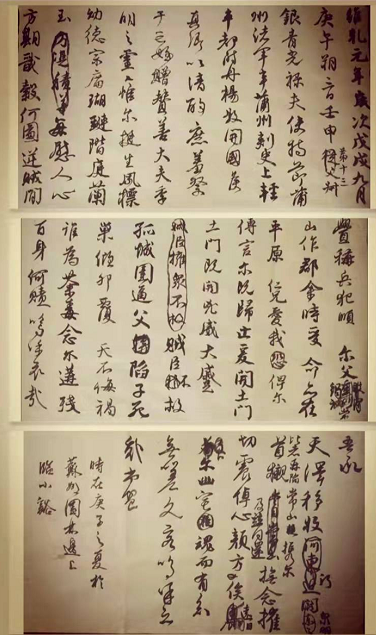 維乾元年歲次戊戌九月
庚午朔三日壬申第十三
銀青光祿夫使持節蒲
州諸軍事蒲州刺史上輕
車都尉丹楊縣開國侯
真卿以清酌庶羞祭
于亡姪贈贊善大夫季
明之靈惟爾挺生夙標
幼德宗廟瑚璉階庭蘭
玉每慰人心
方期戩穀何圖逆賊間
釁稱兵犯順 爾父
山作郡余時受命亦在
平原仁兄愛我俾爾
傳言爾既歸止爰開土門
土門既開兇威大蹙
賊臣擁眾不救賊臣不救
孤城圍逼父陷子死
巢傾卵覆天不悔禍
誰為荼毒念爾遘殘
百身何贖嗚乎哀哉
吾承
天澤移牧河東近
常山攜爾
首櫬及茲同還撫念摧
切震悼心顏方俟
爾幽宅魂而有知
無嗟久客嗚呼哀
哉尚饗
時在庚子之夏於
蘇州園林邊上
臨小谿